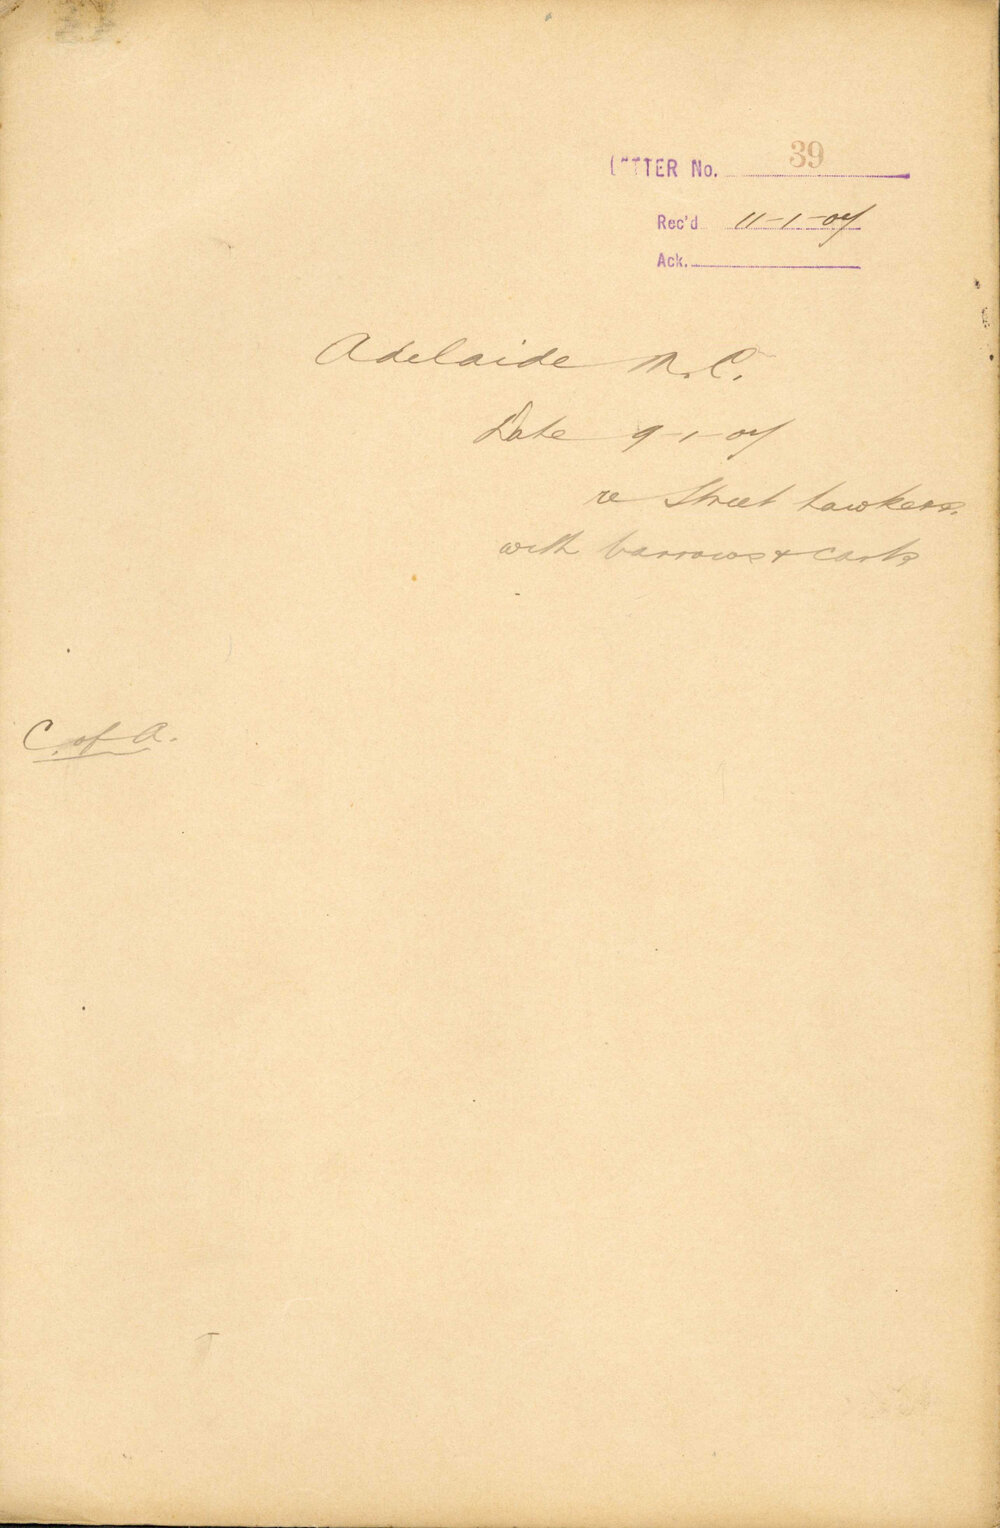 LETTER No. 39
Rec'd 11-1-07
Ack.
Adelaide M.C.
Date 9-1-07
re Street hawkers.
with barrows & carts
C. of A.